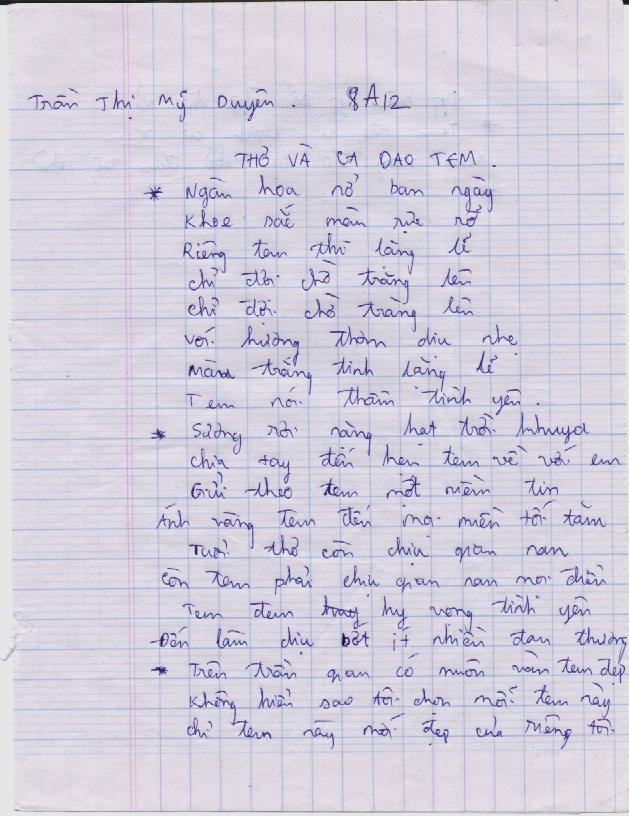 Trần Thị Mỹ Duyên. 8A12
THƠ VÀ CA DAO TEM.
* Ngàn hoa nở ban ngày
Khoe sắc màu rực rỡ
Riêng tem thì lặng lẽ
chỉ đợi chờ trăng lên
chỉ đợi chờ trăng lên
Với hương thơm dịu nhẹ
Màu trắng tinh lặng lẽ
Tem nói thầm tình yêu.
* Sương rơi nặng hạt trời khuya
chia tay đến hẹn tem về với em
Gửi theo tem một niềm tin
Ánh vàng tem đến mọi miền tối tăm
Tuổi thơ còn chịu gian nan
Còn tem phải chịu gian nan mọi điều
Tem đem hy vọng tình yêu
Đến làm dịu bớt ít nhiều đau thương
* Trên trần gian có muôn vàn tem đẹp
Không hiểu sao tôi chọn mỗi tem này
chỉ tem này mới đẹp của riêng tôi.